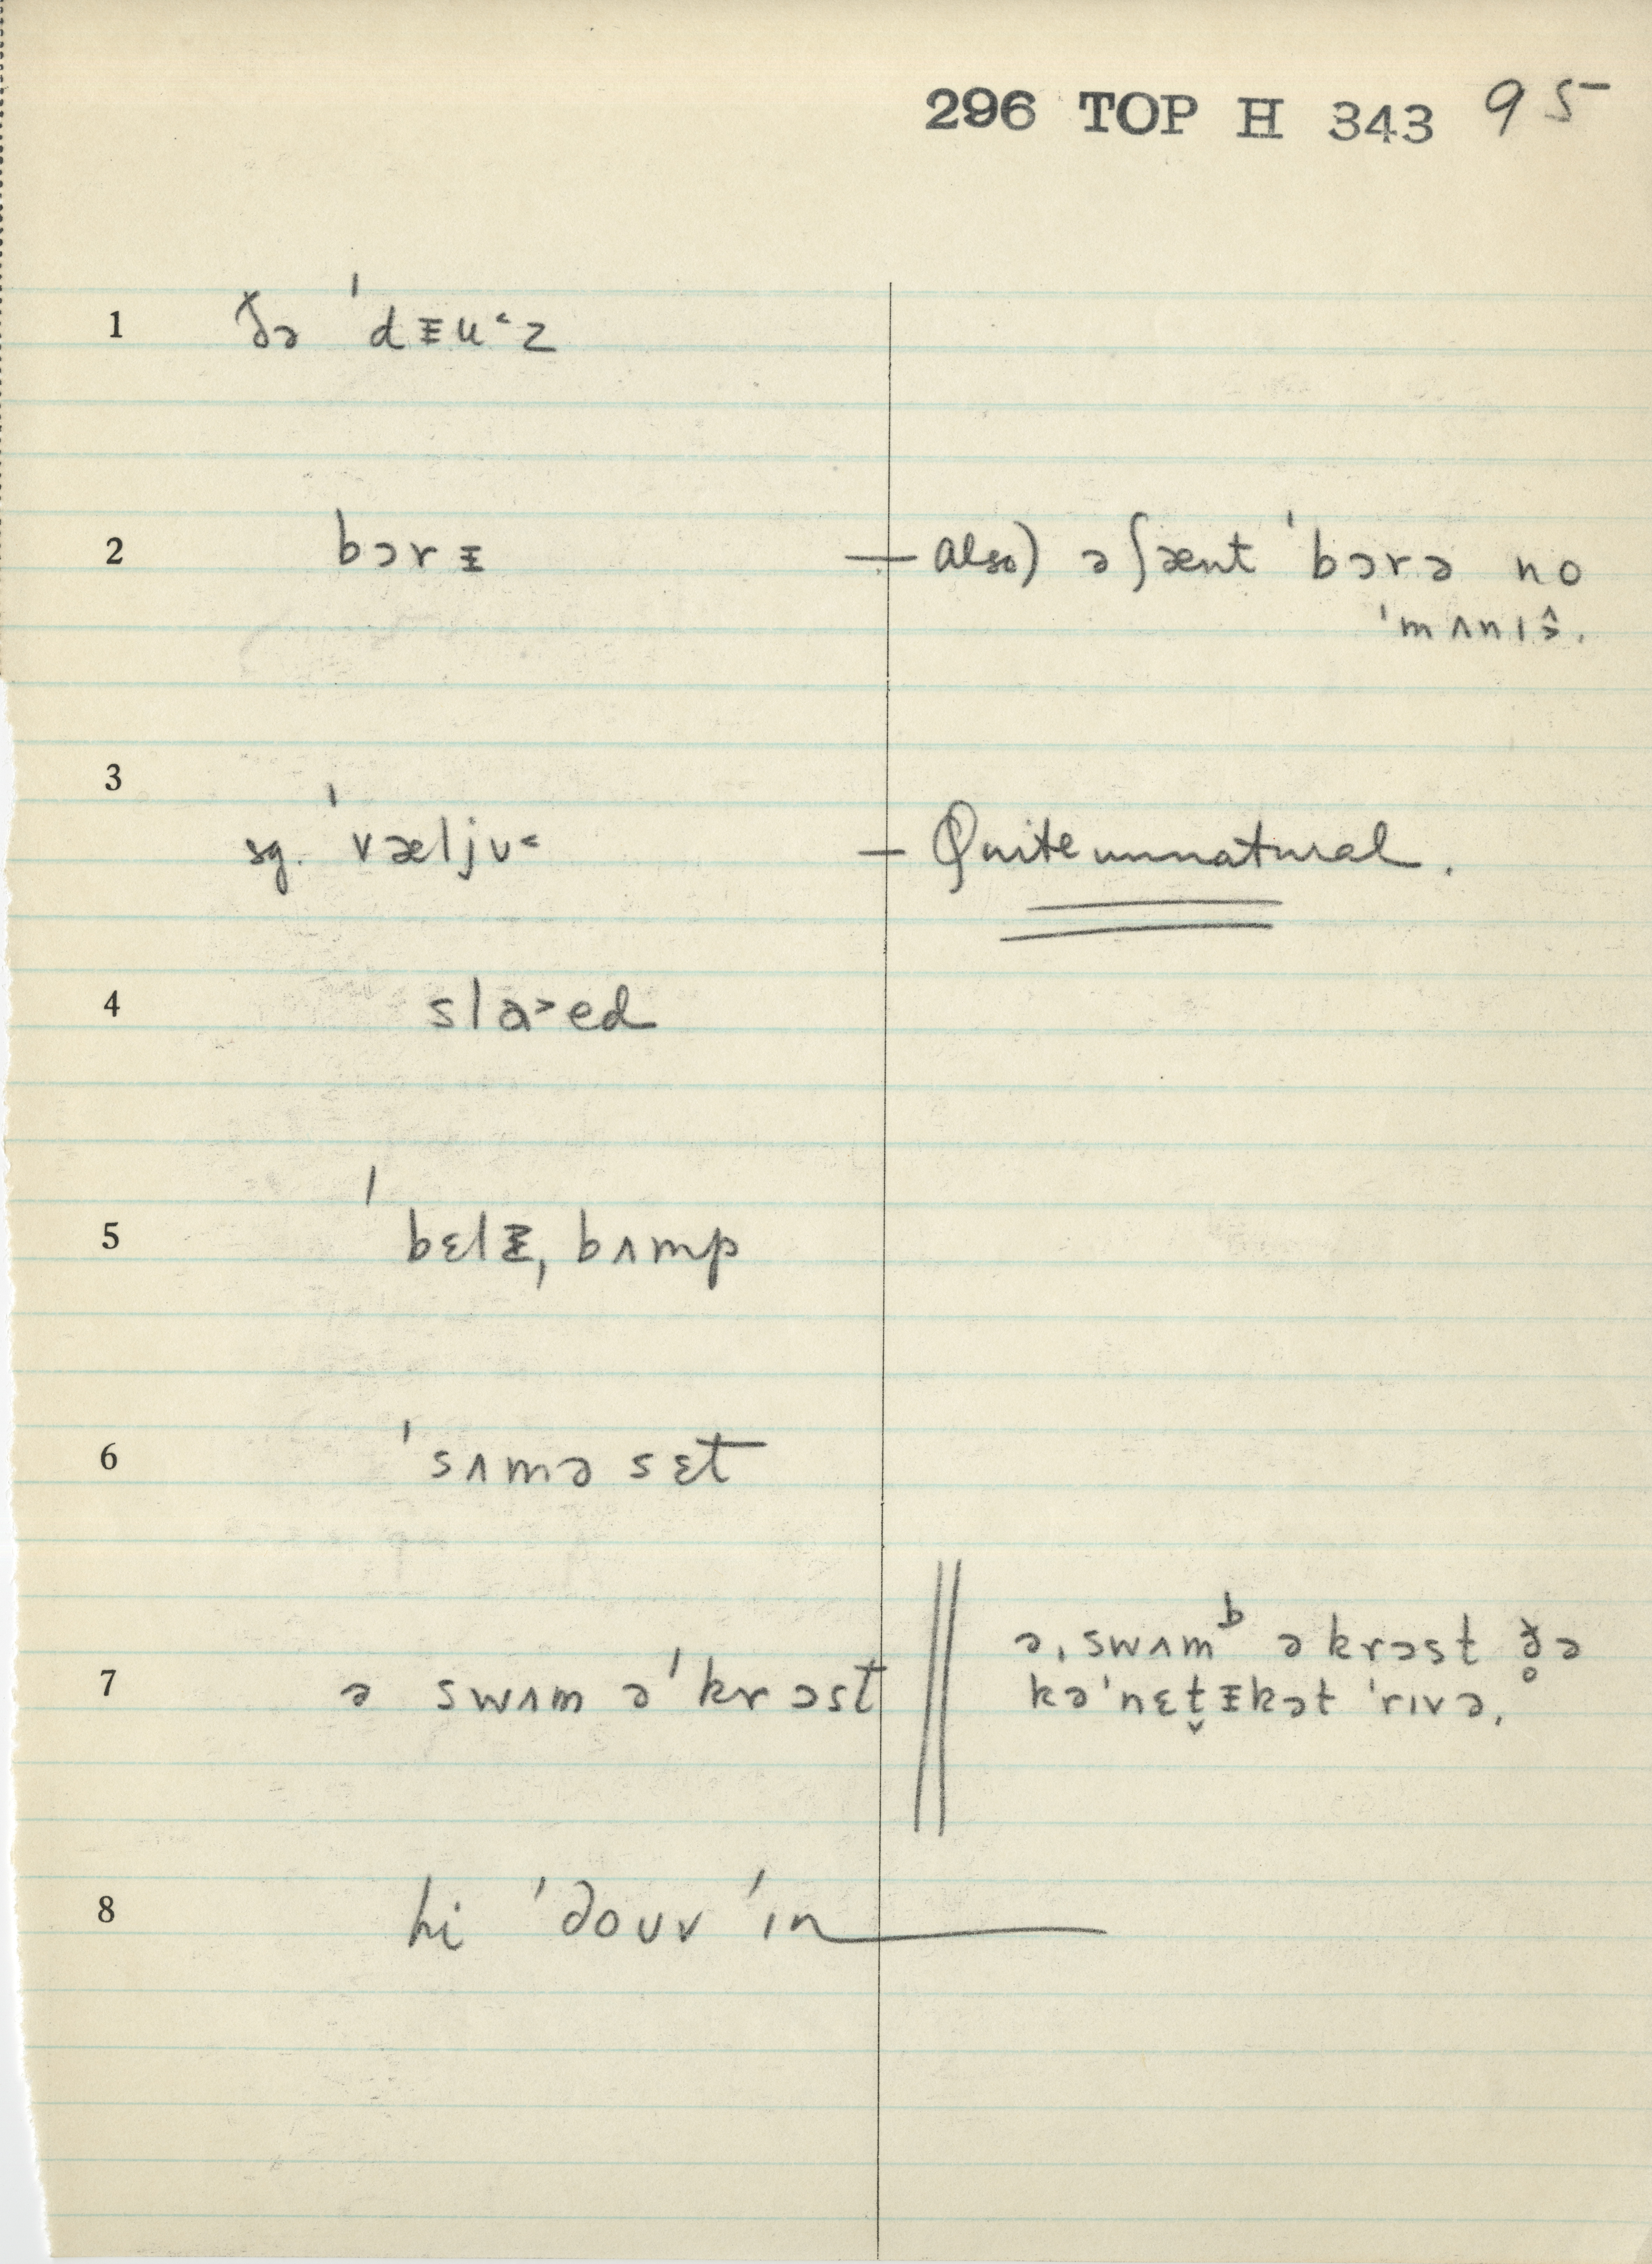 296 TOP H 343 95
1 ðə ˈdᵻu˂z
2 bɔrᵻ — also) ə ʃænt ˈbɔrə no
ˈmʌnɪŝ.
3
sg. ˈvæljʊ˂ — Quite unnatural.
4 slɑ˃ed
5 ˈbɛlᵻ, bʌmp
6 ˈsʌmə sɛt
7 ə swʌm əˈkrɔst ə, swʌmᵇ əkrɔst ð̥ə
kəˈnɛt̬ᵻkət ˈrɪvə.
8 hi ˈdouv ˈɪn